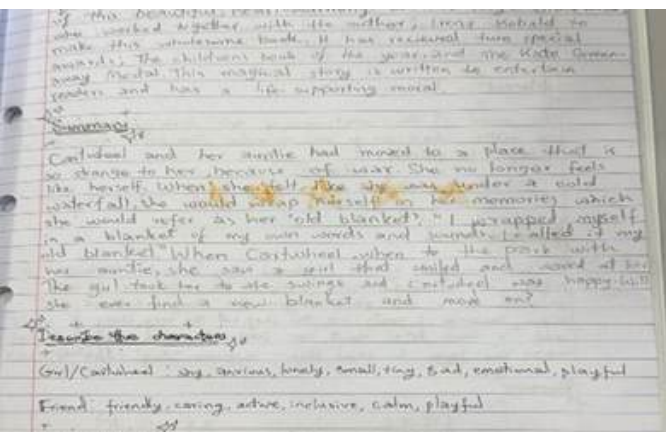 of this beautiful, heart warming
who worked together with the author, Irena Kobald to
make this wholesome book. It has recieved two special
awards; The childrens book of the year and the Kate Green-
away Medal. This magical story is written to entertain
readers and has a life supporting moral.
Summary
Cartwheel and her auntie had moved to a place that is
so strange to her, because of war. She no longer feels
like herself. When she felt like she was under a cold
waterfall, she would wrap herself in her memories which
she would refer as her "old blanket". "I wrapped myself
in a blanket of my own words and sounds. I called it my
old blanket." When Cartwheel when to the park with
her auntie, she saw a girl that smiled and waved at her.
The girl took her to the swings and cartwheel was happy. Will
she ever find a new blanket and move on?
Describe the characters
Girl/Cartwheel : shy, anxious, lonely, small, tiny, sad, emotional, playful
Friend: friendly, caring, active, inclusive, calm, playful